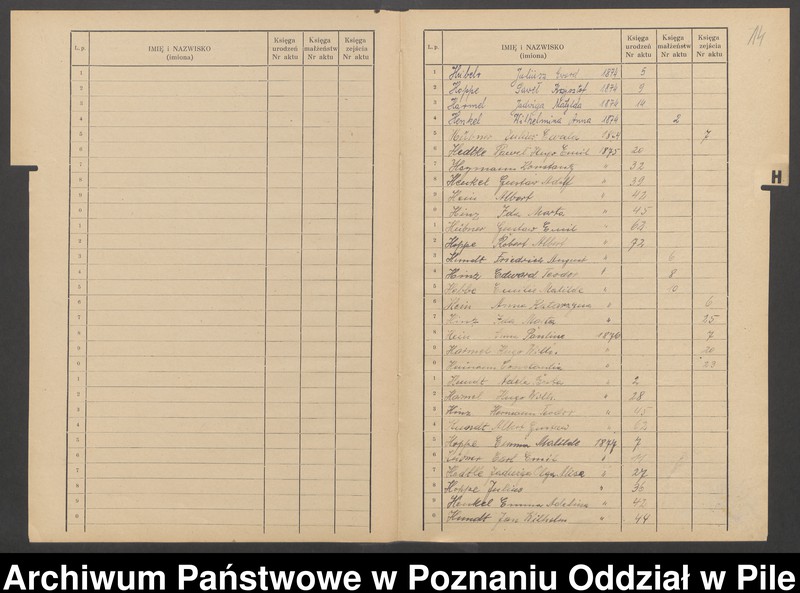 L. p. IMIĘ i NAZWISKO (imiona) Księga urodzeń Nr aktu Księga małżeństw Nr aktu Księga zejścia Nr aktu
1
2
3
4
5
6
7
8
9
0
1
2
3
4
5
6
7
8
9
0
1
2
3
4
5
6
7
8
9
0
14
L. p. IMIĘ i NAZWISKO (imiona) Księga urodzeń Nr aktu Księga małżeństw Nr aktu Księga zejścia Nr aktu
1 Juliusz 1874 5
2 Hoppe Paweł Krzysztof 1874 9
3 Harmel Jadwiga Matylda 1874 14
4 Henkel Wilhelmina Anna 1874 2
5 Hübner Julius 7
6 Hedtke Paweł Hugo Emil 1875 20
7 Heymann Konstanty " 32
8 Henkel Gustaw Adolf " 39
9 Hein Albert " 42
0 Hinz Ida Marta " 45
1 Hübner Gustaw Emil " 62
2 Hoppe Robert Albert " 92
3 Hundt Friedrich August " 6
4 Hinz Edward Teodor " 8
5 Matilde " 10
6 Hein Anna Katarzyna " 6
7 Hinz Ida Marta " 25
8 Hein Paulina 1876 7
9 Harmel Hugo " 20
0 " 23
1 Hundt Adela " 2
2 Hamel Hugo " 28
3 Hinz Hermann Teodor " 45
4 Hundt Albert Gustaw " 62
5 Hoppe Emma Matilde 1877 7
6 Hübner Emil "
7 Hedtke Jadwiga Olga " 27
8 Hoppe Julius " 36
9 Henkel Emma Adelina " 42
0 Hundt Jan Wilhelm " 44
H
Archiwum Państwowe w Poznaniu Oddział w Pile